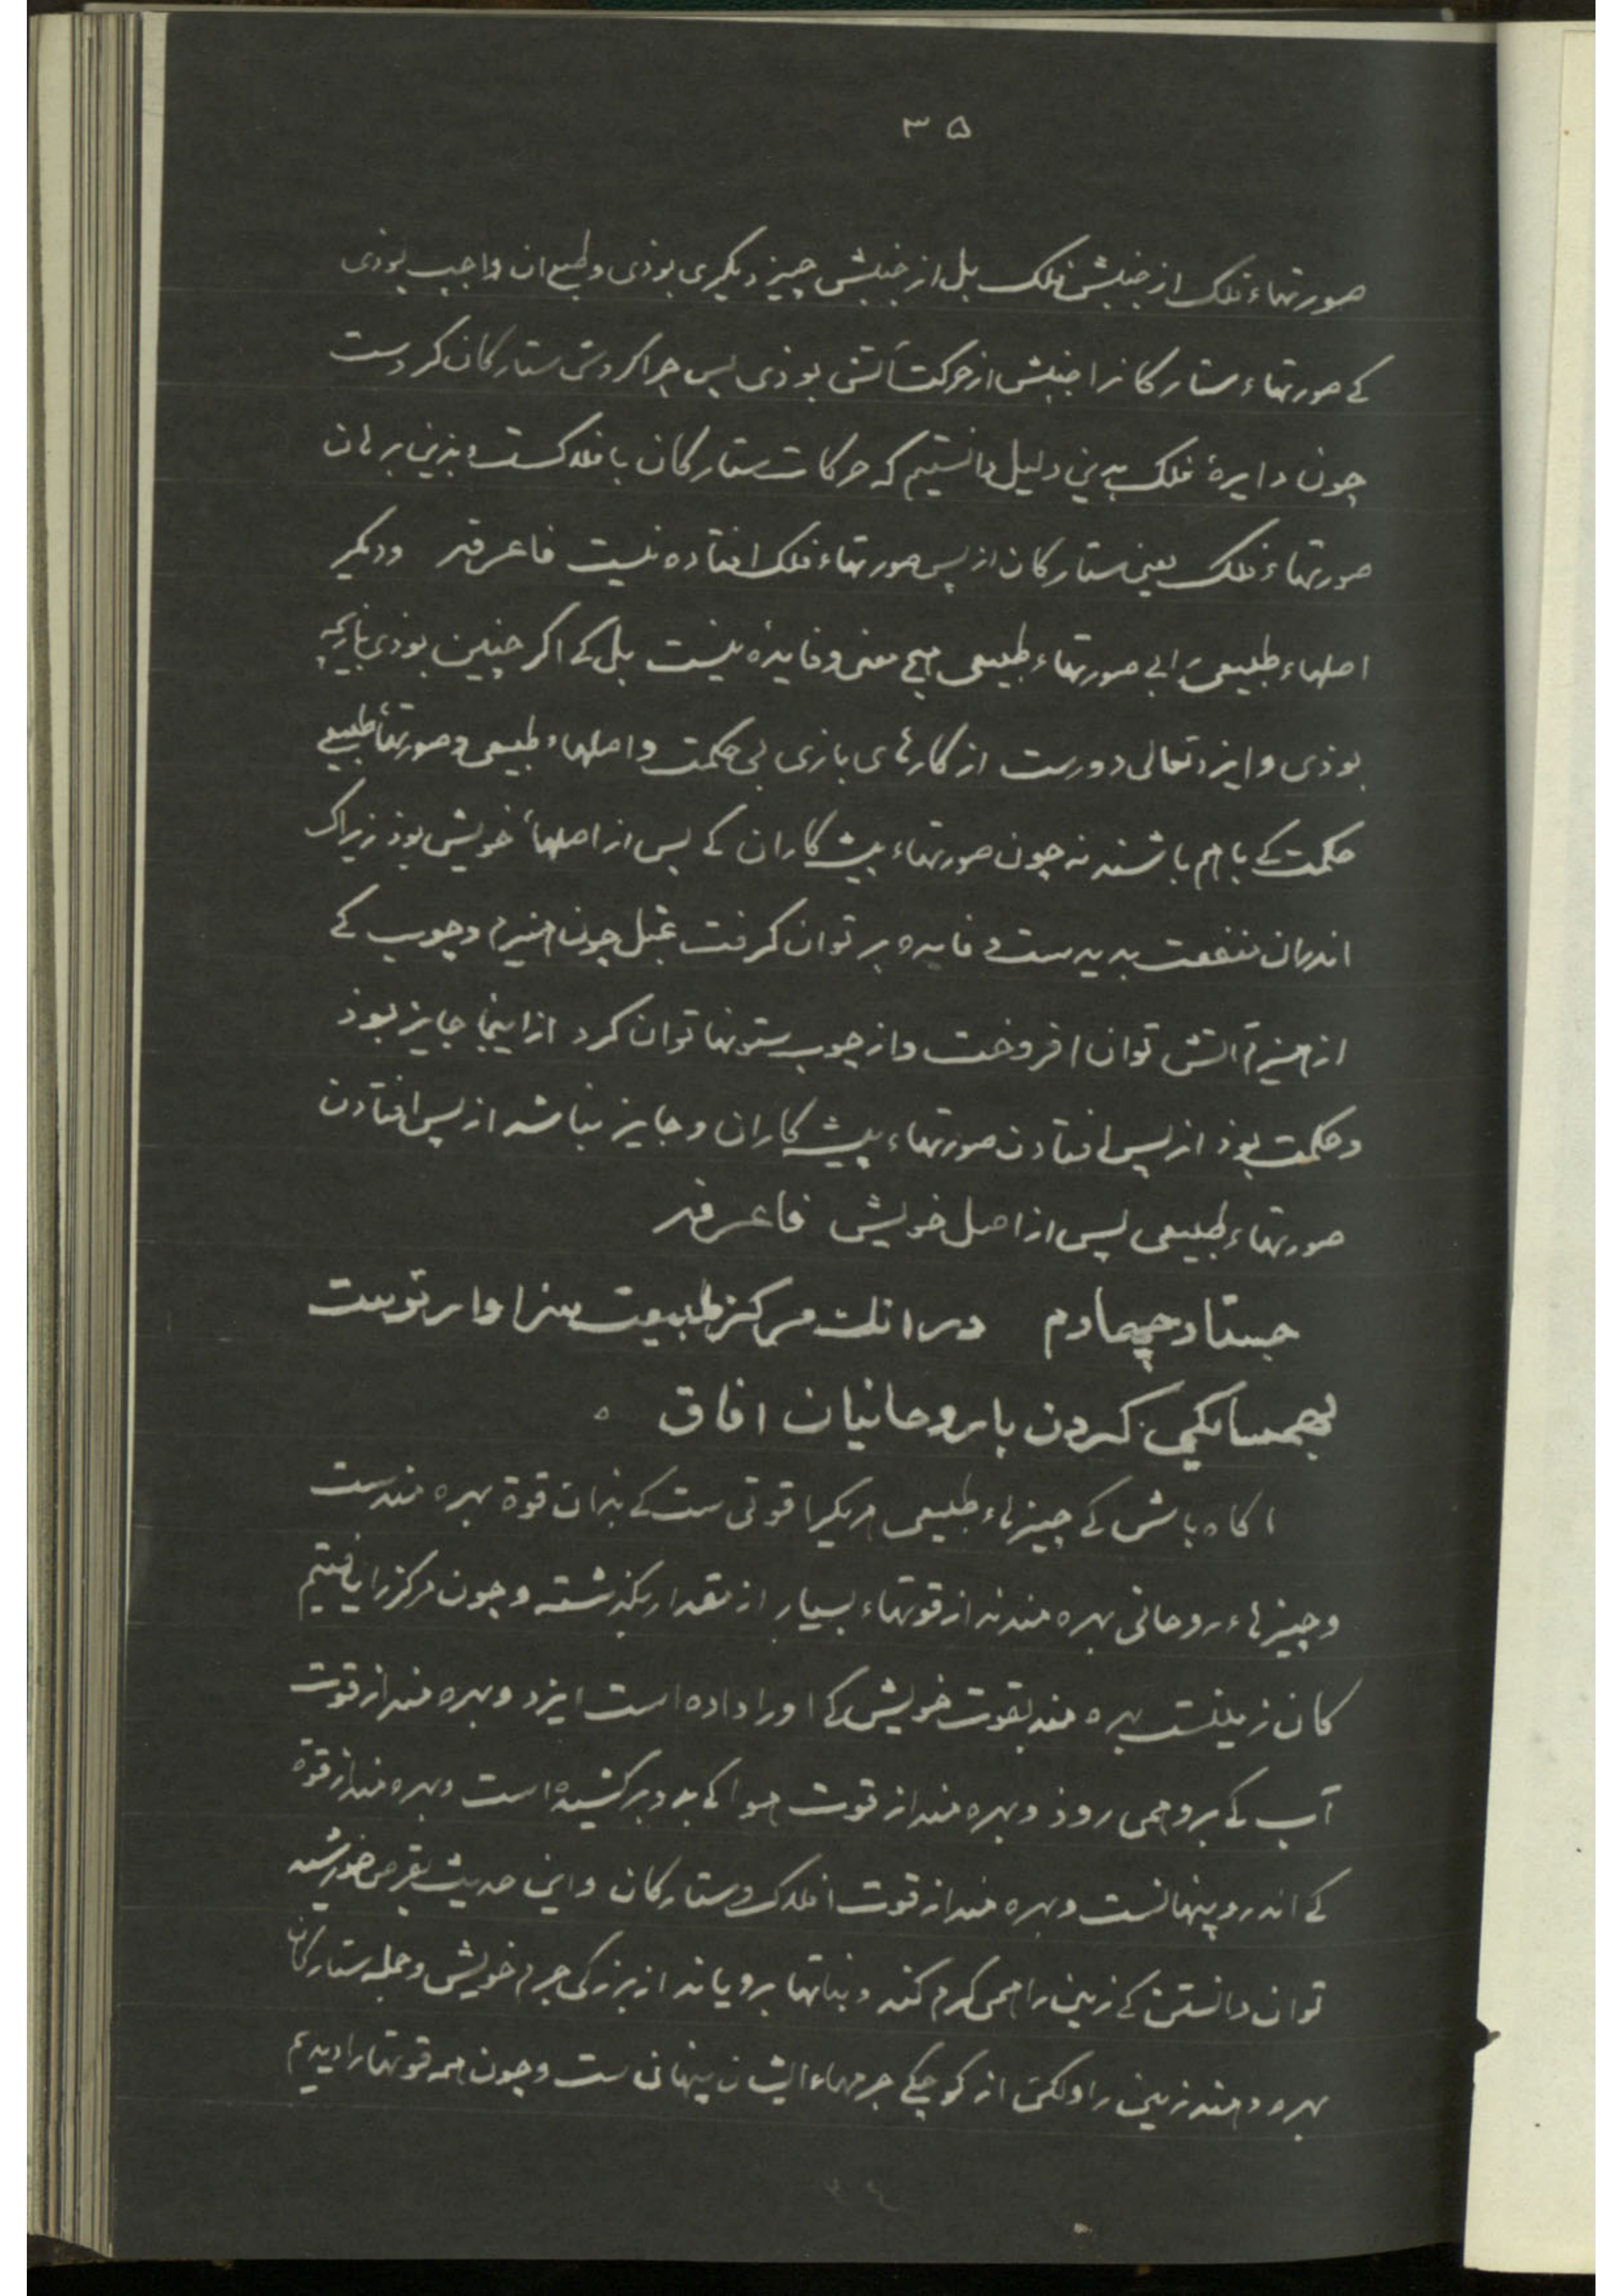 ۳۵
صورتهاء فلک از جنبش فلک بل از جنبش چیز دیکری بوذی و طبع ان واجب بوذی
کے صورتهاء ستارکانرا جنبش از حرکت آتش بوذی پس چرا کردش ستارکان کردست
چون دایرهٔ فلک بدین دلیل دانستیم که حرکات ستارکان با فلکست و بذین برهان
صورتهاء فلک یعنی ستارکان از پس صورتهاء فلک افتاده نیست فاعرفه ودیکر
اصلهاء طبیعی را بی صورتهاء طبیعی هیچ معنی و فایده نیست بل کے اکر چنین بوذی بازیچه
بوذی و ایزد تعالی دورست از کارهای بازی بی حکمت و اصلهاء طبیعی و صورتهاء طبیعی
حکمت کے باهم باشند نه چون صورتهاء پیشه کاران کے پس از اصلهاء خویش بوذ زیراک
اندران منفعت پدیدست و فایده بر توان کرفت بمثل چون هیزم و چوب کے
از هیزم اتش توان افروخت و از چوب ستونها توان کرد ازاینجا جایز بوذ
و حکمت بوذ از پس افتادن صورتهاء پیشه کاران و جایز نباشد از پس افتادن
صورتهاء طبیعی پس از اصل خویش فاعرفه
جستار چهارم در انک مرکز طبیعت سزاوارتوست
بهمسایکی کردن با روحانیان افاق ه
اکاه باش کے چیزهاء طبیعی هریکیرا قوتی ست کے بذان قوة بهره مندست
و چیزهاء روحانی بهره مندند از قوتهاء بسیار از مقدار بکذشته و چون مرکز را یافتیم
کان زمینست بهره مند بقوت خویش کے اورا داده است ایزد و بهره مند از قوت
آب کے برو همی روذ و بهره مند از قوت هوا کے بدو بر کشیده است و بهره مند از قوة
کے اندرو پنهانست و بهره مند از قوت افلاک و ستارکان و این حدیث بقرص خورشید
توان دانستن کے زمین را همی کرم کند و نباتها برویاند از بزرکی جرم خویش و جمله ستارکان
بهره دهند زمین را ولکن از کوچکے جرمهاء ایشان پنهانی ست و چون همه قوتهارا دیدیم